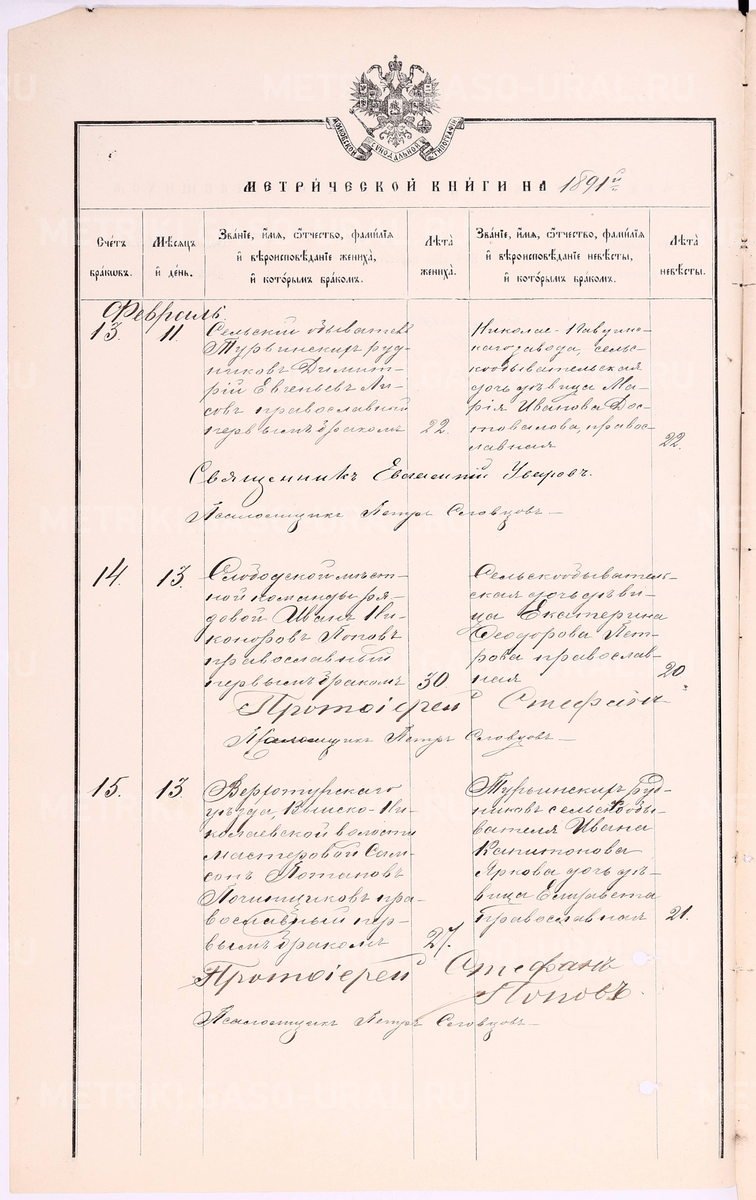 МОСКОВСКОЙ СѴНОДАЛЬНОЙ ТИПОГРАФІИ
МЕТРИ́ЧЕСКОЙ КНИ́ГИ НА 1891й
Счетъ браковъ.
Мѣсяцъ и день.
Зва́нїе, и́мя, ѻ́тчество, фамѵ́лїя и вѣроисповѣ́данїе жениха̀, и кото́рымъ бра́комъ.
Лѣта̀ жениха̀.
Зва́нїе, и́мя, ѻ́тчество, фамѵ́лїя и вѣроисповѣ́данїе невѣ́сты, и кото́рымъ бра́комъ.
Лѣта̀ невѣ́сты.
Февраль.
13. 11.
Сельскій обыватель
Турьинскихъ руд-
никовъ Димит-
рій Евгеньевъ Ли-
совъ православный
первымъ бракомъ 22.
Николае-Павдин-
скаго завода, сель-
скообывательская
дочь дѣвица Ма-
рія Иванова Дос-
товалова, правос-
лавная 22.
Священникъ Евгеній Уваровъ.
Псаломщикъ Петръ Словцовъ
14. 13.
Слободской мѣст-
ной команды ря-
довой Иванъ Ни-
коноровъ Поповъ
православный
первымъ бракомъ 30
Сельскообыватель-
ская дочь дѣви-
ца Екатерина
Ѳеодорова Пет-
рова православ-
ная 20
Протоіерей Стефанъ
Псаломщикъ Петръ Словцовъ
15. 13.
Верхотурскаго
уѣзда, Выйско-Ни-
колаевской волости
мастеровой Сам-
сонъ Потаповъ
Починщиковъ пра-
вославный пер-
вымъ бракомъ 27.
Турьинскихъ руд-
никовъ сельскообы-
вателя Ивана
Капитонова
Яркова дочь дѣ-
вица Елизавета
православная 21.
Протоіерей Стефанъ
Поповъ.
Псаломщикъ Петръ Словцовъ
METRIKI.GASO-URAL.RU